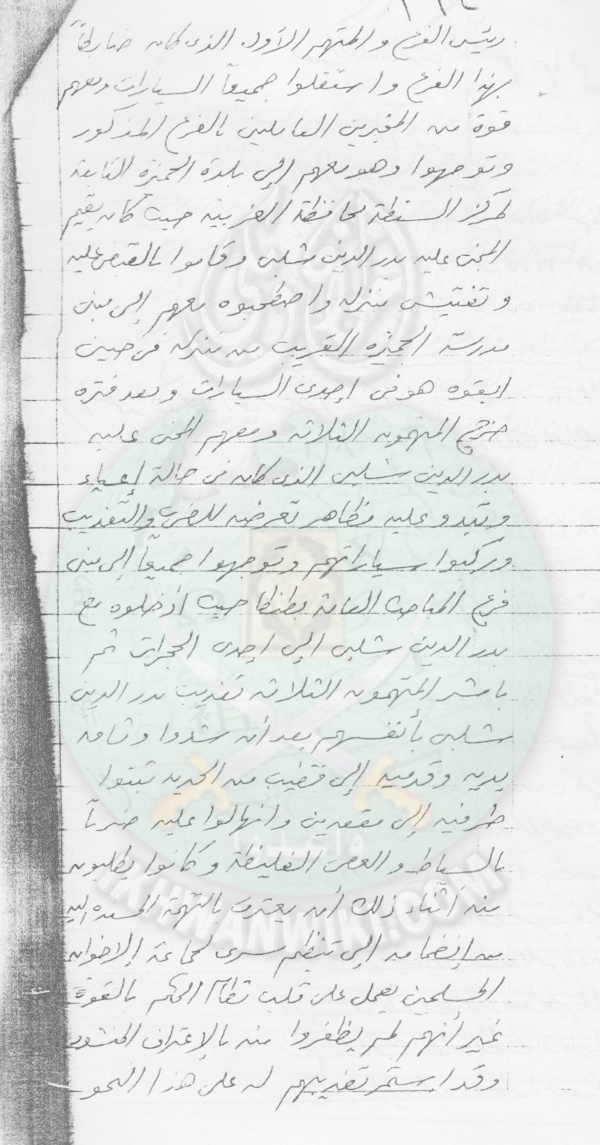 رئيس الفرع والمتهم الأول الذى كان ضابطاً
بهذا الفرع واستقلوا جميعاً السيارات ومعهم
قوة من المخبرين العاملين بالفرع المذكور
وتوجهوا وهو معهم إلى بلدة الجميزة التابعة
لمركز السنطة محافظة الغربية حيث كان يقيم
المجنى عليه بدر الدين شلبى وقاموا بالقبض عليه
وتفتيش منزله واصطحبوه معهم إلى مبنى
مدرسة الجميزة القريب من منزله فى حين
ابقوه هو فى إحدى السيارات وبعد فتره
خرج المتهمون الثلاثة ومعهم المجنى عليه
بدر الدين شلبى الذى كان فى حالة إعياء
وتبدو عليه مظاهر تعرضه للضرب والتعذيب
وركبوا سياراتهم وتوجهوا جميعاً إلى مبنى
فرع المباحث العامة بطنطا حيث أدخلوه مع
بدر الدين شلبى إلى إحدى الحجرات ثم
باشر المتهمون الثلاثة تعذيب بدر الدين
شلبى بأنفسهم بعد أن شدوا وثاقه
يديه وقدميه إلى قضيب من الحديد ثبتوا
طرفيه إلى مقعدين وانهالوا عليه ضرباً
بالسياط والعصى الغليظة وكانوا يطلبون
منه أثناء ذلك أن يعترف بالتهمة المسنده إليه
من إنضمامه إلى تنظيم سرى لجماعة الإخوان
المسلمين يعمل على قلب نظام الحكم بالقوة
غير أنهم لم يظفروا منه بالإعتراف المنشود
وقد استمر تعذيبهم له على هذا النحو
واعدوا
IKHWANWIKI.COM